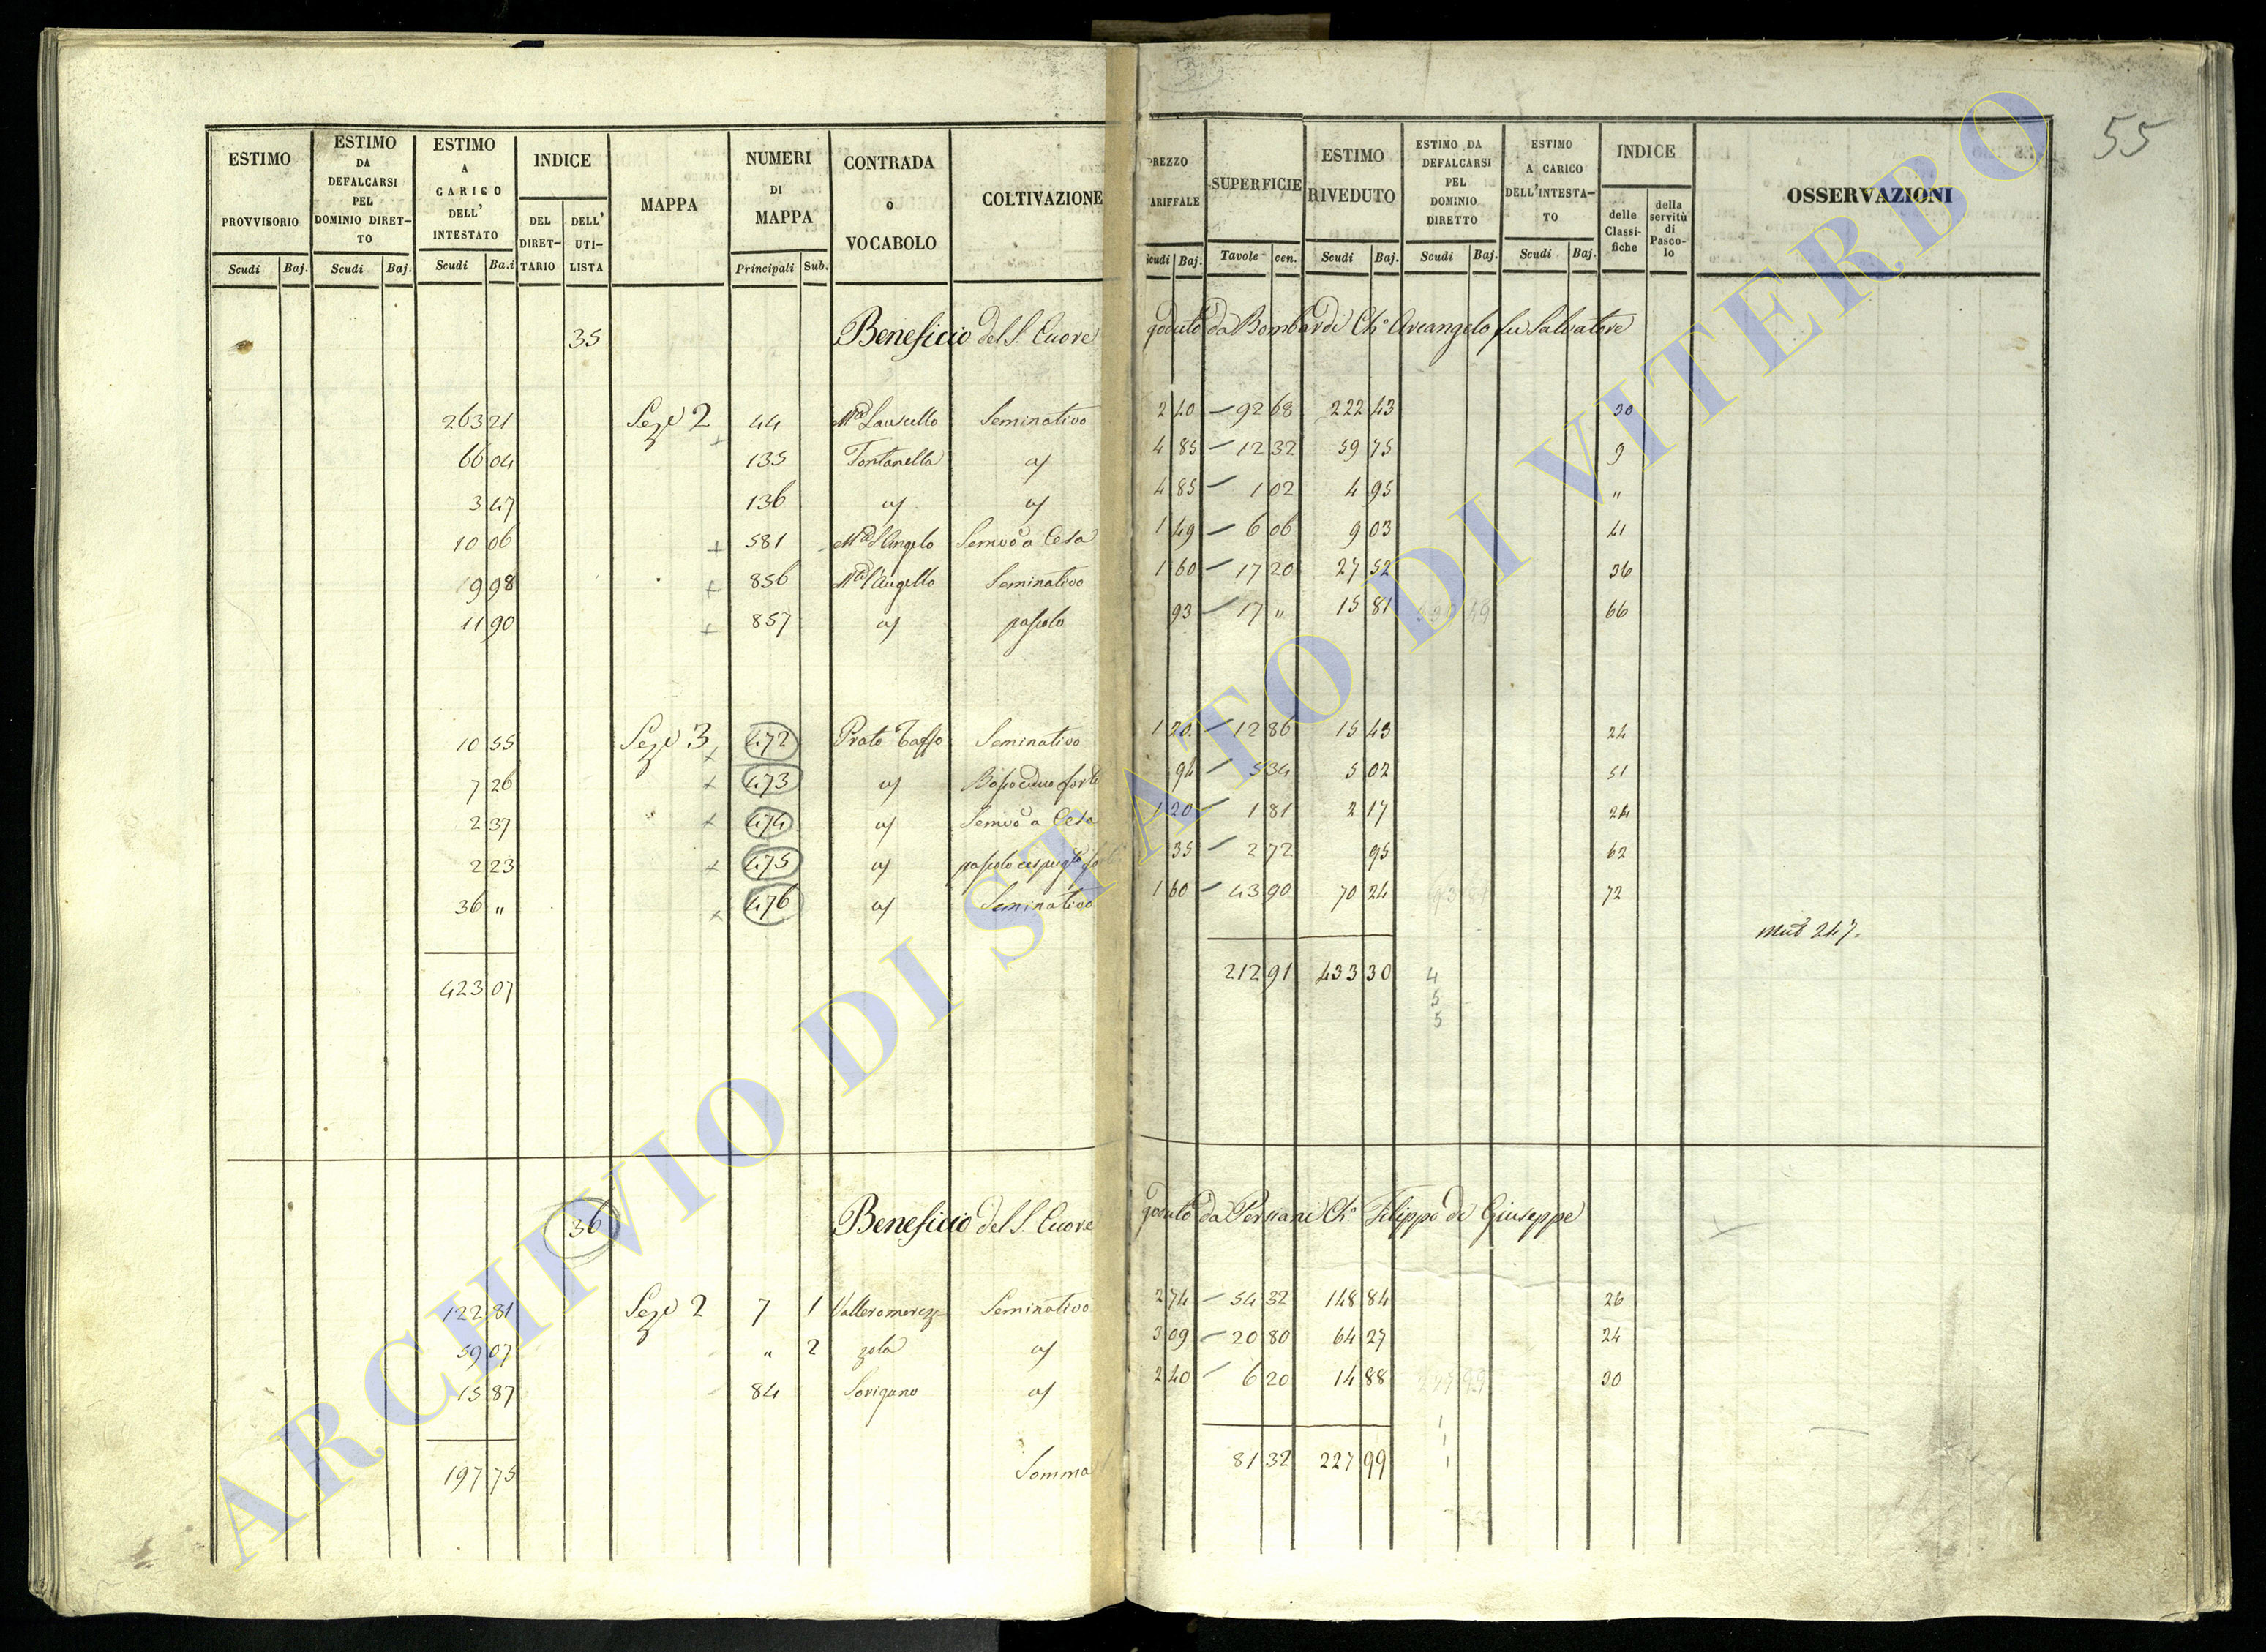 55
ESTIMO PROVVISORIO Scudi Baj. ESTIMO DA DEFALCARSI PEL DOMINIO DIRET-TO Scudi Baj. ESTIMO A CARICO DELL' INTESTATO Scudi Ba.i INDICE DEL DIRET-TARIO DELL' UTI-LISTA MAPPA NUMERI DI MAPPA Principali Sub. CONTRADA o VOCABOLO COLTIVAZIONE PREZZO TARIFFALE Scudi Baj. SUPERFICIE Tavole cen. ESTIMO RIVEDUTO Scudi Baj. ESTIMO DA DEFALCARSI PEL DOMINIO DIRETTO Scudi Baj. ESTIMO A CARICO DELL'INTESTA-TO Scudi Baj. INDICE delle Classi-fiche della servitù di Pasco-lo OSSERVAZIONI
35 Beneficio del S. Cuore goduto da Bombardi Ch.o Arcangelo fu Salvatore
263 21 Sez.e 2 44 Seminativo 2 40 92 68 222 43 30
66 04 135 Fontanella a/ 4 85 12 32 59 75 9
3 47 136 a/ a/ 4 85 1 02 4 95 "
10 06 581 M.a S. Angelo Semvo a Cesa 1 49 6 06 9 03 41
19 98 856 Seminativo 1 60 17 20 27 52 36
11 90 857 a/ pascolo 93 17 " 15 81 66
10 55 Sez.e 3 472 Prato Tasso Seminativo 1 20 12 86 15 43 24
7 26 473 a/ Bosco ceduo forte 94 5 34 5 02 51
2 37 474 a/ Semvo a Cesa 1 20 1 81 2 17 24
2 23 475 a/ pascolo 35 2 72 95 62
36 " 476 a/ Seminativo 1 60 43 90 70 24 72
Mut 247.
423 07 212 91 433 30 4
5
5
36 Beneficio del S. Cuore goduto da Persiani Ch.o Filippo di Giuseppe
122 81 Sez.e 2 7 1 Valleromerez- Seminativo 2 74 54 32 148 84 26
59 07 " 2 zola a/ 3 09 20 80 64 27 24
15 87 84 Sorigano a/ 2 40 6 20 14 88 227 99 30
197 75 Somma 81 32 227 99
ARCHIVIO DI STATO DI VITERBO